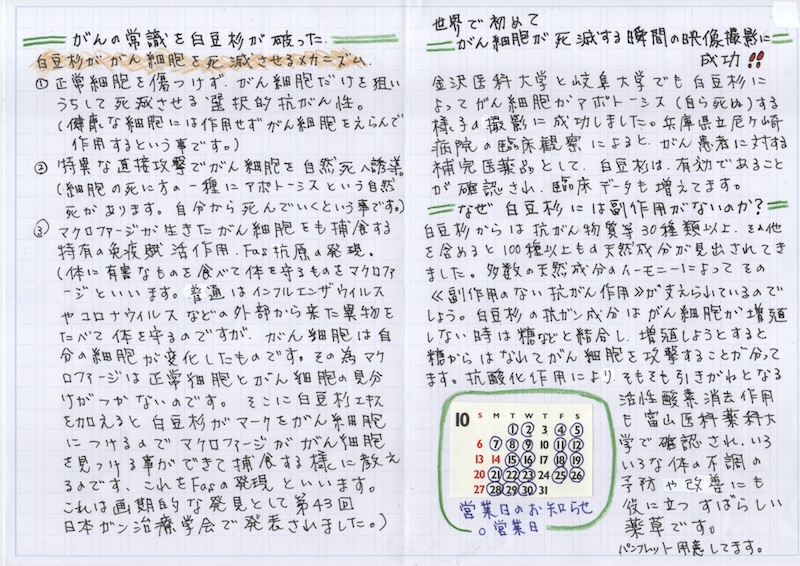 がんの常識を白豆杉が破った.
白豆杉ががん細胞を死滅させるメカニズム.
① 正常細胞を傷つけず、がん細胞だけを狙い
うちして死滅させる 選択的抗がん性。
(健康な細胞には作用せずがん細胞をえらんで
作用するという事です。)
② 特異な直接攻撃でがん細胞を自然死へ誘導。
(細胞の死に方の一種にアポトーシスという自然
死があります。自分から死んでいくという事です。)
③ マクロファージが生きたがん細胞をも捕食する
特有の免疫賦活作用.Fas抗原の発現。
(体に有害なものを食べて体を守るものをマクロファ
ージといいます。普通はインフルエンザウイルス
やコロナウイルスなどの外部から来た異物を
たべて体を守るのですが、がん細胞は自
分の細胞が変化したものです。その為マク
ロファージは正常細胞とがん細胞の見分
けがつかないのです。そこに白豆杉エキス
を加えると白豆杉がマークをがん細胞
につけるのでマクロファージががん細胞
を見つける事ができて捕食する様に教え
るのです、これをFasの発現といいます。
これは画期的な発見として第43回
日本ガン治療学会で発表されました。)
世界で初めて
がん細胞が死滅する瞬間の映像撮影に
成功!!
金沢医科大学と岐阜大学でも白豆杉に
よってがん細胞がアポトーシス(自ら死ぬ)する
様子の撮影に成功しました。兵庫県立尼ケ崎
病院の臨床観察によると、がん患者に対する
補完医薬品として、白豆杉は、有効であること
が確認され、臨床データも増えてます。
なぜ 白豆杉には副作用がないのか?
白豆杉からは抗がん物質等30種類以上、その他
を含めると100種以上もの天然成分が見出されてき
ました。多数の天然成分のハーモニーによってその
《副作用のない抗がん作用》が支えられているので
しょう。白豆杉の抗ガン成分はがん細胞が増殖
しない時は糖などと結合し、増殖しようとすると
糖からはなれてがん細胞を攻撃することが分って
ます。抗酸化作用により、そもそも引きがねとなる
活性酸素消去作用
も富山医科薬科大
学で確認され、いろ
いろな体の不調の
予防や改善にも
役に立つすばらしい
薬草です。
パンフレット用意してます。
10 S M T W T F S
1 2 3 4 5
6 7 8 9 10 11 12
13 14 15 16 17 18 19
20 21 22 23 24 25 26
27 28 29 30 31
営業日のお知らせ
○営業日